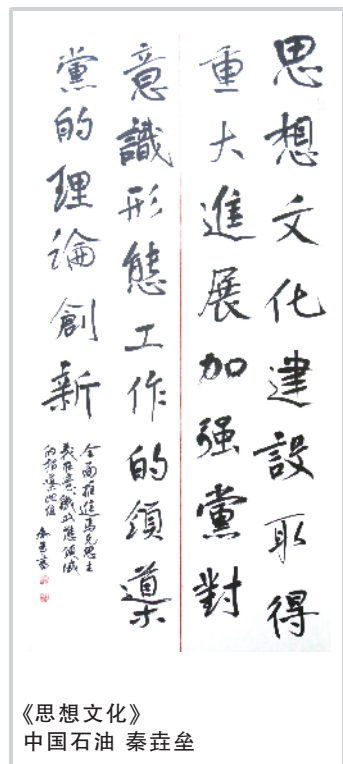 思想文化建設取得
重大進展加强黨對
意識形態工作的領導
黨的理論創新
全面推進馬克思主
義在意識形態領域
的指導地位
《思想文化》
中国石油 秦垚垒